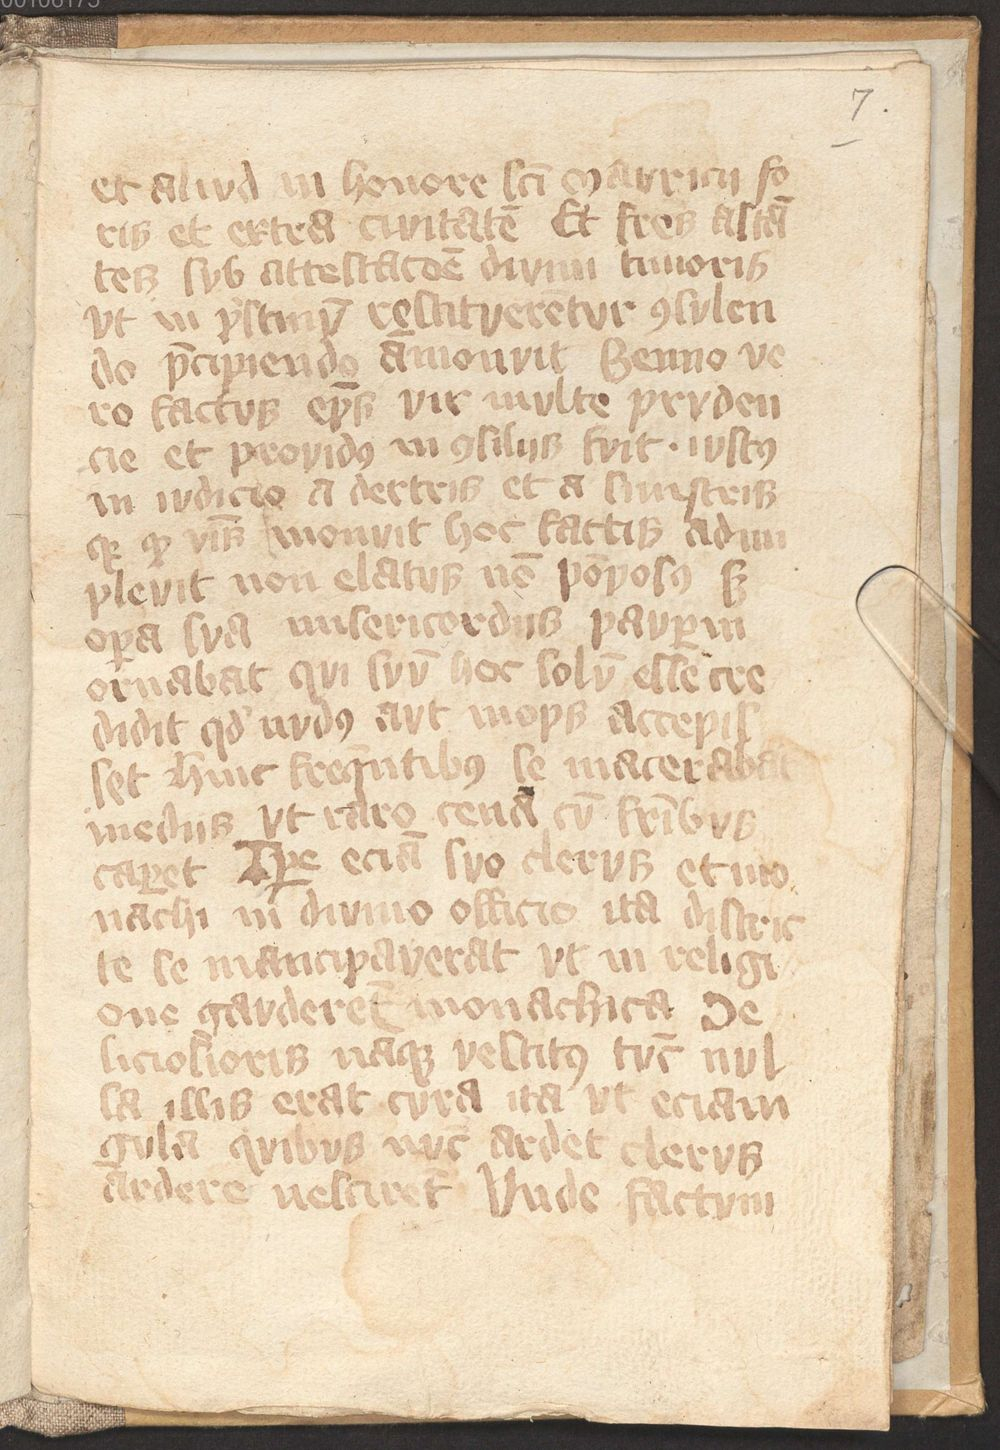 00108175
7.
et aliud in honore scī Mauricii fo
ris et extra ciuitatē Et fres astā
tes svb attestacōē diuini timoris
vt in pristinv̄ restitverētvr ꝯsvlen
do p̄cipiendo āmonvit Benno ve
ro factvs ep̄s vir mvlte prvden
cie et providꝯ in ꝯsiliis fvit · ivstꝯ
in ivdicio a dextris et a sinistris
monvit hoc factis adim
plevit non elatvs nō pōposꝯ sꝫ
op̄a sva misericordiis pavp̄m
ornabat qvi svv̄ hoc solv̄ esse cre
didit qd nvdꝯ avt inops accepis
set hinc freq̄ntibꝯ se macerabat
mediis vt raro cenā cv̄ fr̄ibvs
cap̄et Tp̄e eciā svo clervs et mo
nachi in divino officio ita distric
te se mancipaverat vt in religi
one gavderet monachica De
liciosioris naqꝫ vestitꝯ tv̄c nvl
la illis erat cvra ita vt eciam
gvla qvibvs nv̄c ardet clervs
ardere nesciret Vnde factvm